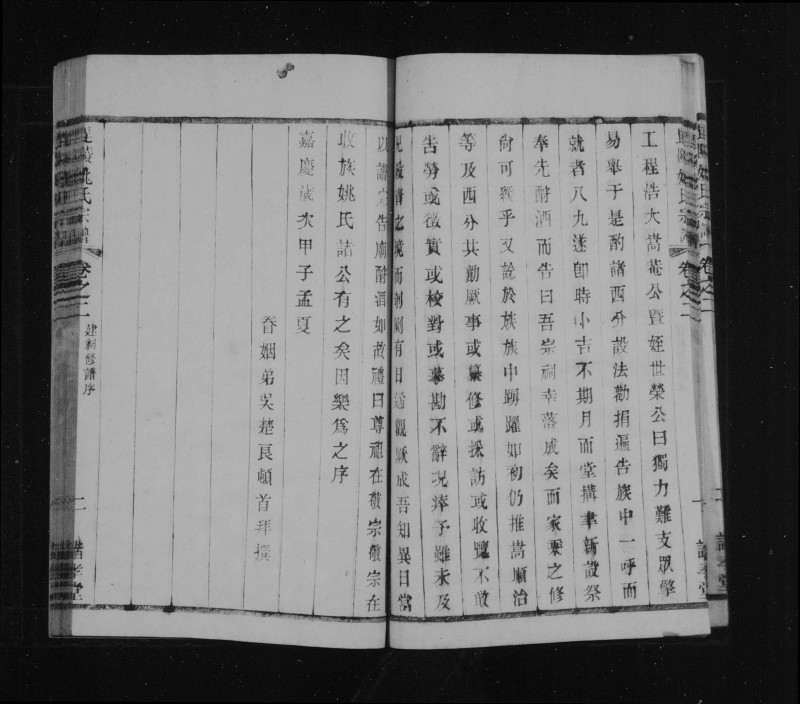 工程浩大嵩菴公暨姪世榮公曰獨力難支眾擎
易舉于是酌諸西分設法勸捐遍告族中一呼而
就者八九遂卽時小吉不期月而堂搆聿新設祭
奉先酹酒而告曰吾宗祠幸落成矣而家乘之修
尙可緩乎又詮於族族中踴躍如初仍推嵩順治
等及西分共勷厥事或纂修或採訪或收躧不敢
告勞或徵實或校對或摹勘不辭況瘁予雖未及
見竣者之境而剞劂有日適觀厥成吾知異日當
以譜完告廟酹酒如故禮曰尊祖在敬宗敬宗在
收族姚氏諸公有之矣因樂爲之序
嘉慶歲次甲子孟夏
眷姻弟吳楚良頓首拜撰
毘陵姚氏宗譜
卷之二
建祠修譜序
二
諧孝堂